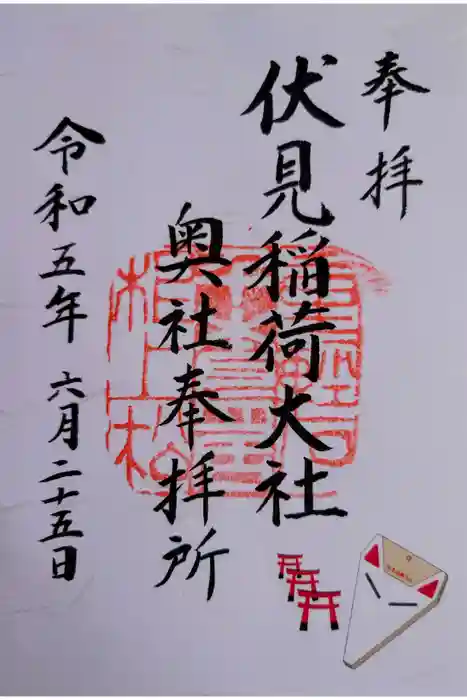 奉拝
伏見稲荷大社
奥社奉拝所
令和五年 六月二十五日